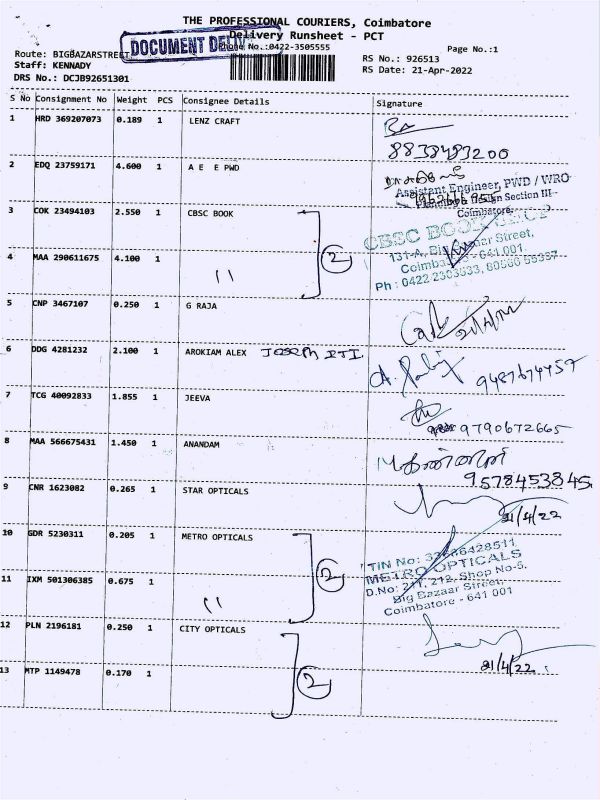 THE PROFESSIONAL COURIERS, Coimbatore
Delivery Runsheet - PCT
DOCUMENT DELIV
Phone No.:0422-3505555
Page No.:1
Route: BIGBAZARSTREET
RS No.: 926513
Staff: KENNADY
RS Date: 21-Apr-2022
DRS No.: DCJB92651301
S No Consignment No Weight PCS Consignee Details Signature
1 HRD 369207073 0.189 1 LENZ CRAFT
8838483200
2 EDQ 23759171 4.600 1 A E E PWD
Assistant Engineer, PWD / WRO
Section III
Coimbatore
3 COK 23494103 2.550 1 CBSC BOOK
CBSC BOOK
131-A, Big Bazaar Street,
4 MAA 290611675 4.100 1
2
Coimbatore - 641 001.
Ph : 0422 2303633, 80560 55357
"
5 CNP 3467107 0.250 1 G RAJA
21/4/22
6 DDG 4281232 2.100 1 AROKIAM ALEX JOSEPH ITI
9487674457
7 TCG 40092833 1.855 1 JEEVA
9790672665
8 MAA 566675431 1.450 1 ANANDAM
9578453845
9 CNR 1623082 0.265 1 STAR OPTICALS
21/4/22
10 GDR 5230311 0.205 1 METRO OPTICALS
TIN No:
METRO OPTICALS
11 IXM 501306385 0.675 1
2
D.No: 211, 212, Shop No-5,
Big Bazaar Street,
Coimbatore - 641 001
"
12 PLN 2196181 0.250 1 CITY OPTICALS
21/4/22
13 MTP 1149478 0.170 1
2